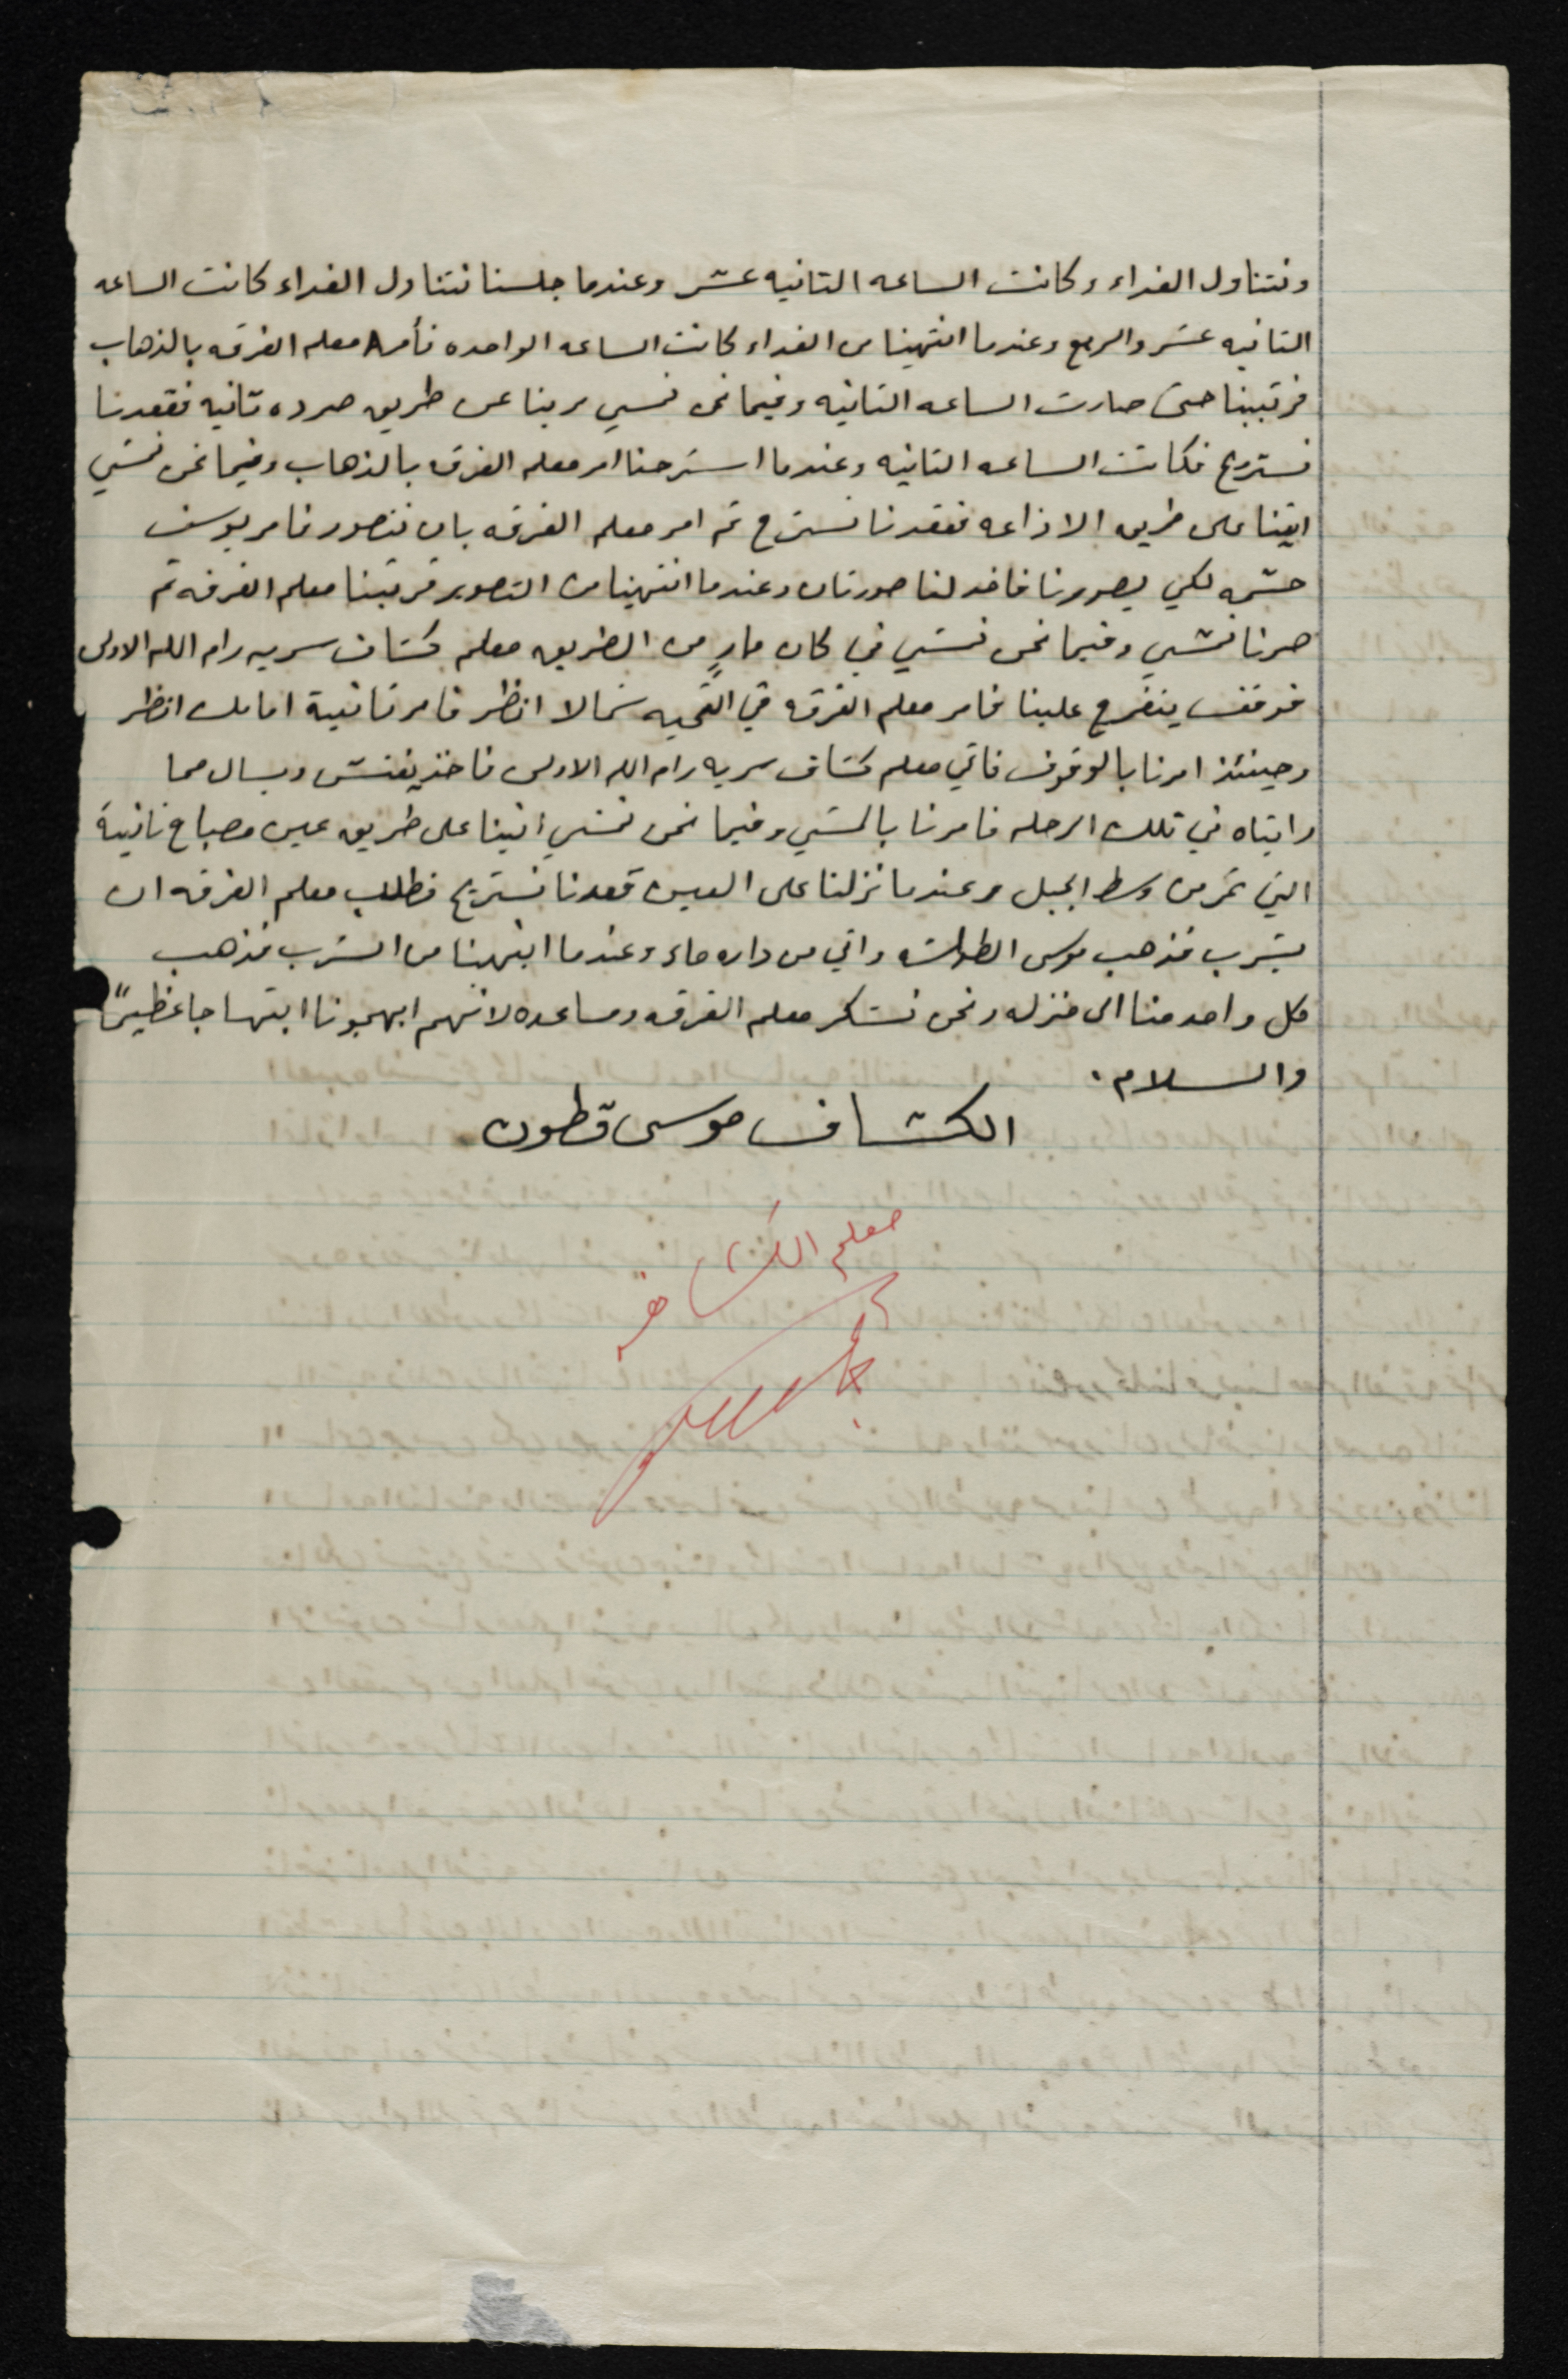 ونتناول الغداء وكانت الساعه الثانيه عشر وعندما جلسنا نتناول الغداء كانت الساعه
الثانيه عشر والربع وعندما انتهينا من الغداء كانت الساعه الواحده فأمر معلم الفرقه بالذهاب
فرتبنا حتى صارت الساعه الثانيه وفيما نحن نمشي مرينا عن طريق صرده ثانيه فقعدنا
نستريح فكانت الساعه الثانيه وعندما استرحنا امر معلم الفرقه بالذهاب وفيما نحن نمشي
اتينا على طريق الاذاعه فقعدنا نسترح ثم امر معلم الفرقه بان نتصور فامر يوسف
حشمه لكي يصورنا فاخد لنا صورتان وعندما انتهينا من التصوير فرتبنا معلم الفرقه ثم
صرنا نمشي وفيما نحن نمشي في كان مارٍ من الطريق معلم كشاف سريه رام الله الاولى
فوقف يتفرج علينا فامر معلم الفرقه في التحيه شمالا انظر فامر ثانية امامك انظر
وحينئذ امرنا بالوقوف فاتي معلم كشاف سريه رام الله الاولى فاخذ يفتش ويسال مما
رايناه في تلك الرحله فامرنا بالمشي وفيما نحن نمشي اتينا على طريق عين مصباح ثانية
التي تمر من وسط الجبل وعندما نزلنا على العين قعدنا نستريح فطلب معلم الفرقه ان
يشرب فذهب موسى واتي من داره ماء وعندما انتهينا من الشرب فذهب
كل واحد منا الى منزله ونحن نشكر معلم الفرقه ومساعده لانهم ابهجونا ابتهاجا عظيماً
والسلام.
الكشاف موسى قطون
معلم الكشافه